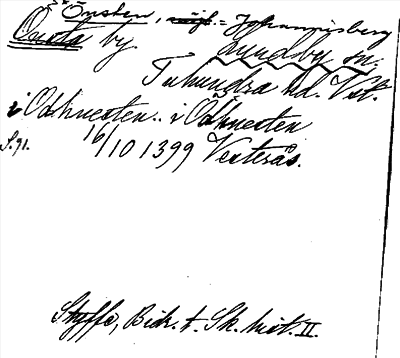 Önsten, = Johannisberg
Önsta by Lundby sn.
Tuhundra hd. Vstm.
i Odhnesten .. i Odhnesten
S. 91. 16/10 1399 Vesterås.
Styffe, Bidr. t. Sk. hist. II.